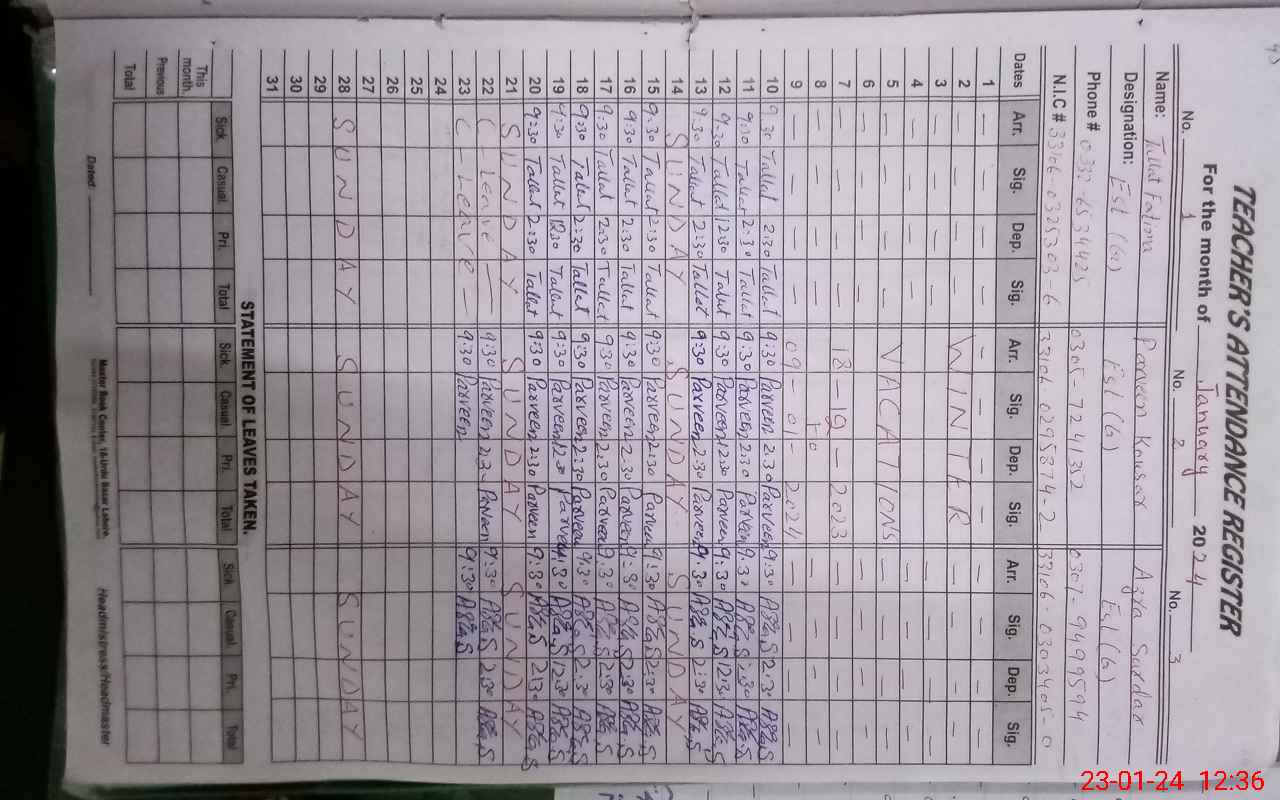 TEACHER'S ATTENDANCE REGISTER
For the month of January 2024
No. 1 No. 2 No. 3
Name: Tallat Fatima Parveen Kousar Azra Sardar
Designation: Est (G) Est (G) Est (G)
Phone # 0332-6534425 0305-7241352 0307-9499594
N.I.C # 33106-0325303-6 33106-0295874-2 33106-0303405-0
Dates Arr. Sig. Dep. Sig. Arr. Sig. Dep. Sig. Arr. Sig. Dep. Sig.
1 — — — — — — — — — — — —
2 — — — — WINTER — — — —
3 — — — — — — — —
4 — — — — — — — —
5 — — — — VACATIONS — — — —
6 — — — — — — — —
7 — — — — 18-12-2023 — — — —
8 — — — — to — — — —
9 — — — — 09-01-2024 — — — —
10 9:30 Tallat 2:30 Tallat 9:30 Parveen 2:30 Parveen 9:30 2:30
11 9:30 Tallat 2:30 Tallat 9:30 Parveen 2:30 Parveen 9:30 2:30
12 9:30 Tallat 12:30 Tallat 9:30 Parveen 12:30 Parveen 9:30 12:30
13 9:30 Tallat 2:30 Tallat 9:30 Parveen 2:30 Parveen 9:30 2:30
14 SUNDAY SUNDAY SUNDAY
15 9:30 Tallat 2:30 Tallat 9:30 Parveen 2:30 Parveen 9:30 2:30
16 9:30 Tallat 2:30 Tallat 9:30 Parveen 2:30 Parveen 9:30 2:30
17 9:30 Tallat 2:30 Tallat 9:30 Parveen 2:30 Parveen 9:30 2:30
18 9:30 Tallat 2:30 Tallat 9:30 Parveen 2:30 Parveen 9:30 2:30
19 9:30 Tallat 12:30 Tallat 9:30 Parveen 12:30 Parveen 9:30 12:30
20 9:30 Tallat 2:30 Tallat 9:30 Parveen 2:30 Parveen 9:30 2:30
21 SUNDAY SUNDAY SUNDAY
22 C - Leave — 9:30 Parveen 2:30 Parveen 9:30 2:30
23 C - Leave — 9:30 Parveen 9:30
24
25
26
27
28 SUNDAY SUNDAY SUNDAY
29
30
31
STATEMENT OF LEAVES TAKEN.
Sick. Casual Pri. Total Sick. Casual. Pri. Total Sick Casual. Pri. Total
This month.
Previous
Total
Dated: Master Book Center, 16-Urdu Bazar Lahore. Headmistress/Headmaster
23-01-24 12:36